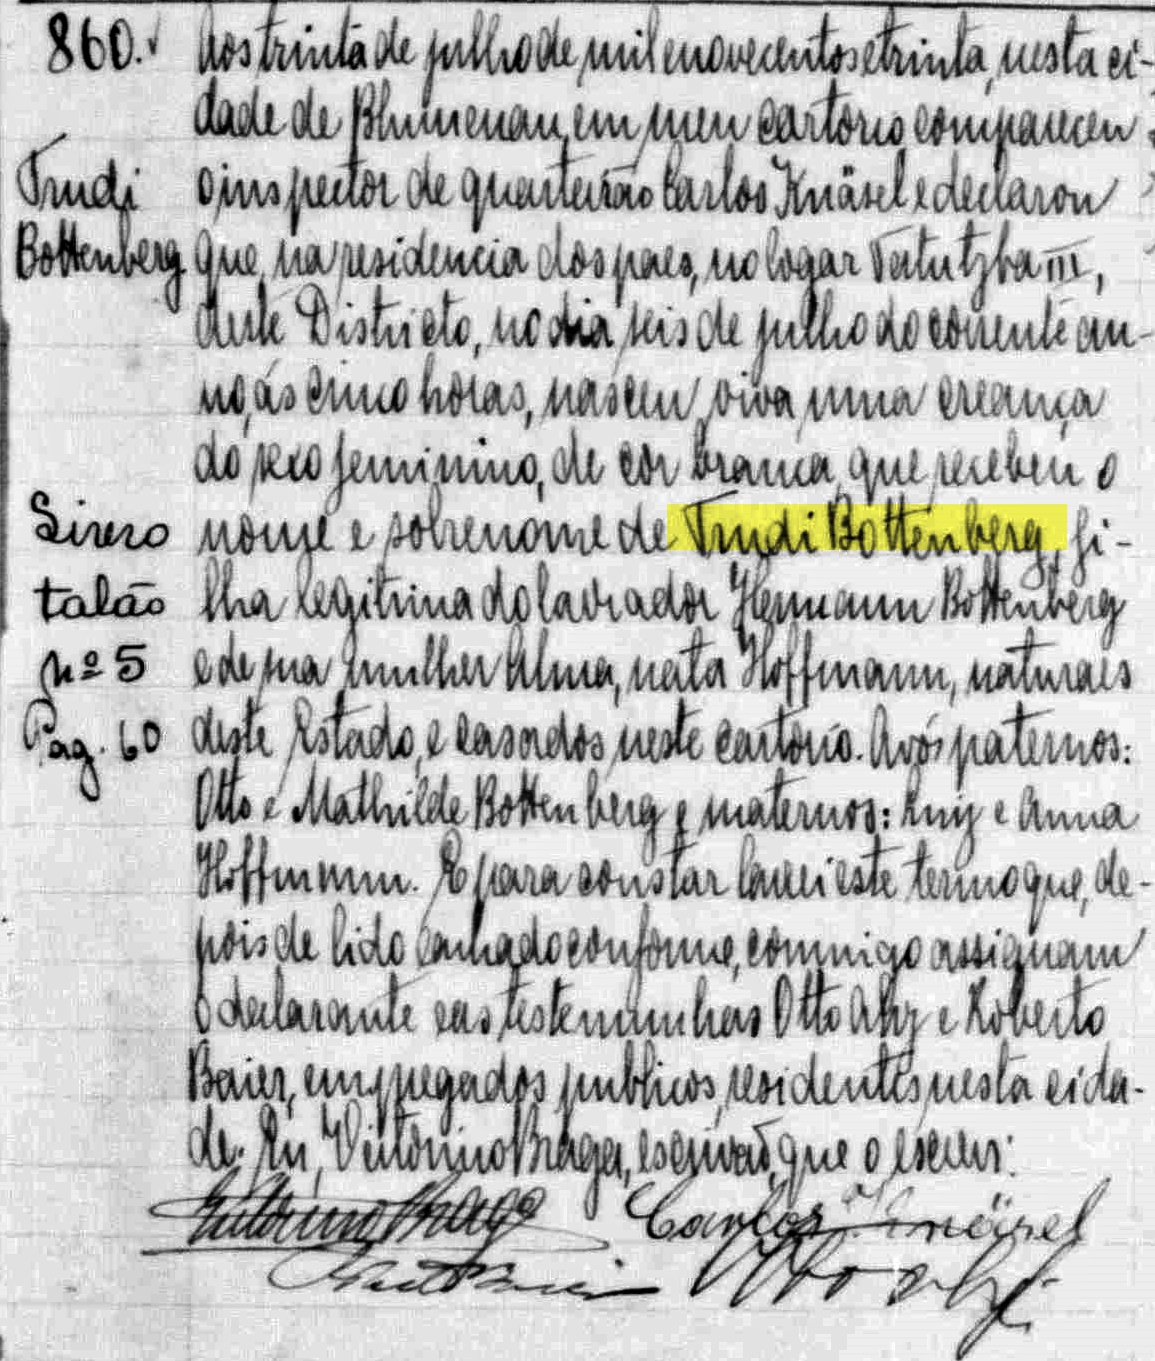 860.
Aos trinta de julho de mil e novecentos e trinta, nesta ci-
dade de Blumenau, em meu cartorio compareceu
Trudi
Bottenberg
o inspector de quarteirão Carlos Knäsel e declarou
que, na residencia dos paes, no logar Tatutyba III,
deste Districto, no dia seis de julho do corrente an-
no, ás cinco horas, nasceu viva uma creança
do sexo feminino, de cor branca, que recebeu o
nome e sobrenome de Trudi Bottenberg, fi-
lha legitima do lavrador Hermann Bottenberg
e de sua mulher Alma, nata Hoffmann, naturaes
deste Estado, e casados neste cartorio. Avós paternos:
Otto e Mathilde Bottenberg e maternos: Luiz e Anna
Hoffmann. E para constar lavrei este termo que, de-
pois de lido e achado conforme, commigo assignam
o declarante e as testemunhas Otto Abry e Roberto
Baier, empregados publicos, residentes nesta cida-
de. Eu, Victorino Braga, escrivão, que o escrevi:
talão
nº 5
Pag. 60
Victorino Braga
Carlos Knäsel